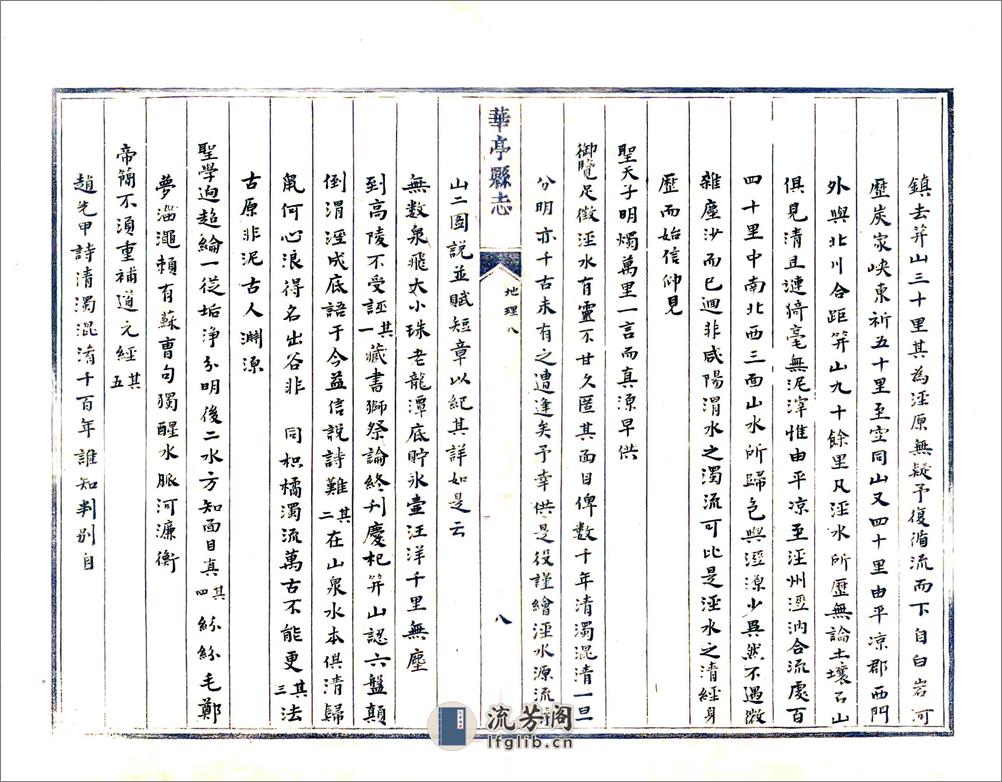 鎮去筓山三十里其為涇原無疑予復循流而下自白岩河
歷炭家峽東祈五十里至空同山又四十里由平凉郡西門
外與北川合距筓山九十餘里凡涇水所歷無論土壤石山
俱見清且漣猗毫無泥滓惟由平凉至涇州涇汭合流處百
四十里中南北西三面山水所歸色與涇源少異然不過微
雜塵沙而已迥非咸陽渭水之濁流可比是涇水之清經身
歷而始信仰見
聖天子明燭萬里一言而真源早供
御覽足徵涇水有靈不甘久匿其面目俾數千年清濁混清一旦
分明亦千古未有之遭逢矣予幸供是役謹繪涇水源流
華亭縣志
地理八
八
山二圖說並賦短章以紀其詳如是云
無數泉飛大小珠老龍潭底貯氷壺汪洋千里無塵
到高陵不受誣其一藏書獅祭論終刋慶杞筓山認六盤顛
倒渭涇成底語于今益信說詩難其二在山泉水本俱清歸
氣何心浪得名出谷非 同枳橘濁流萬古不能更其三法
古原非泥古人淵源
聖學逈超綸一從垢淨分明後二水方知面目真其四紛紛毛鄭
夢淄澠賴有蘇曹句獨醒水脈河濂衡
帝簡不須重補道元經其五
趙先甲詩清濁混淆千百年誰知判别自
流芳阁
lfglib.cn